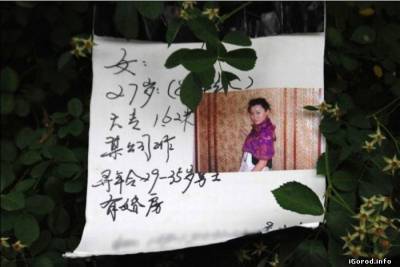 女：
27岁：
大专 162米
某公司工作
寻年合29-35岁男士
有婚房
iGorod.info